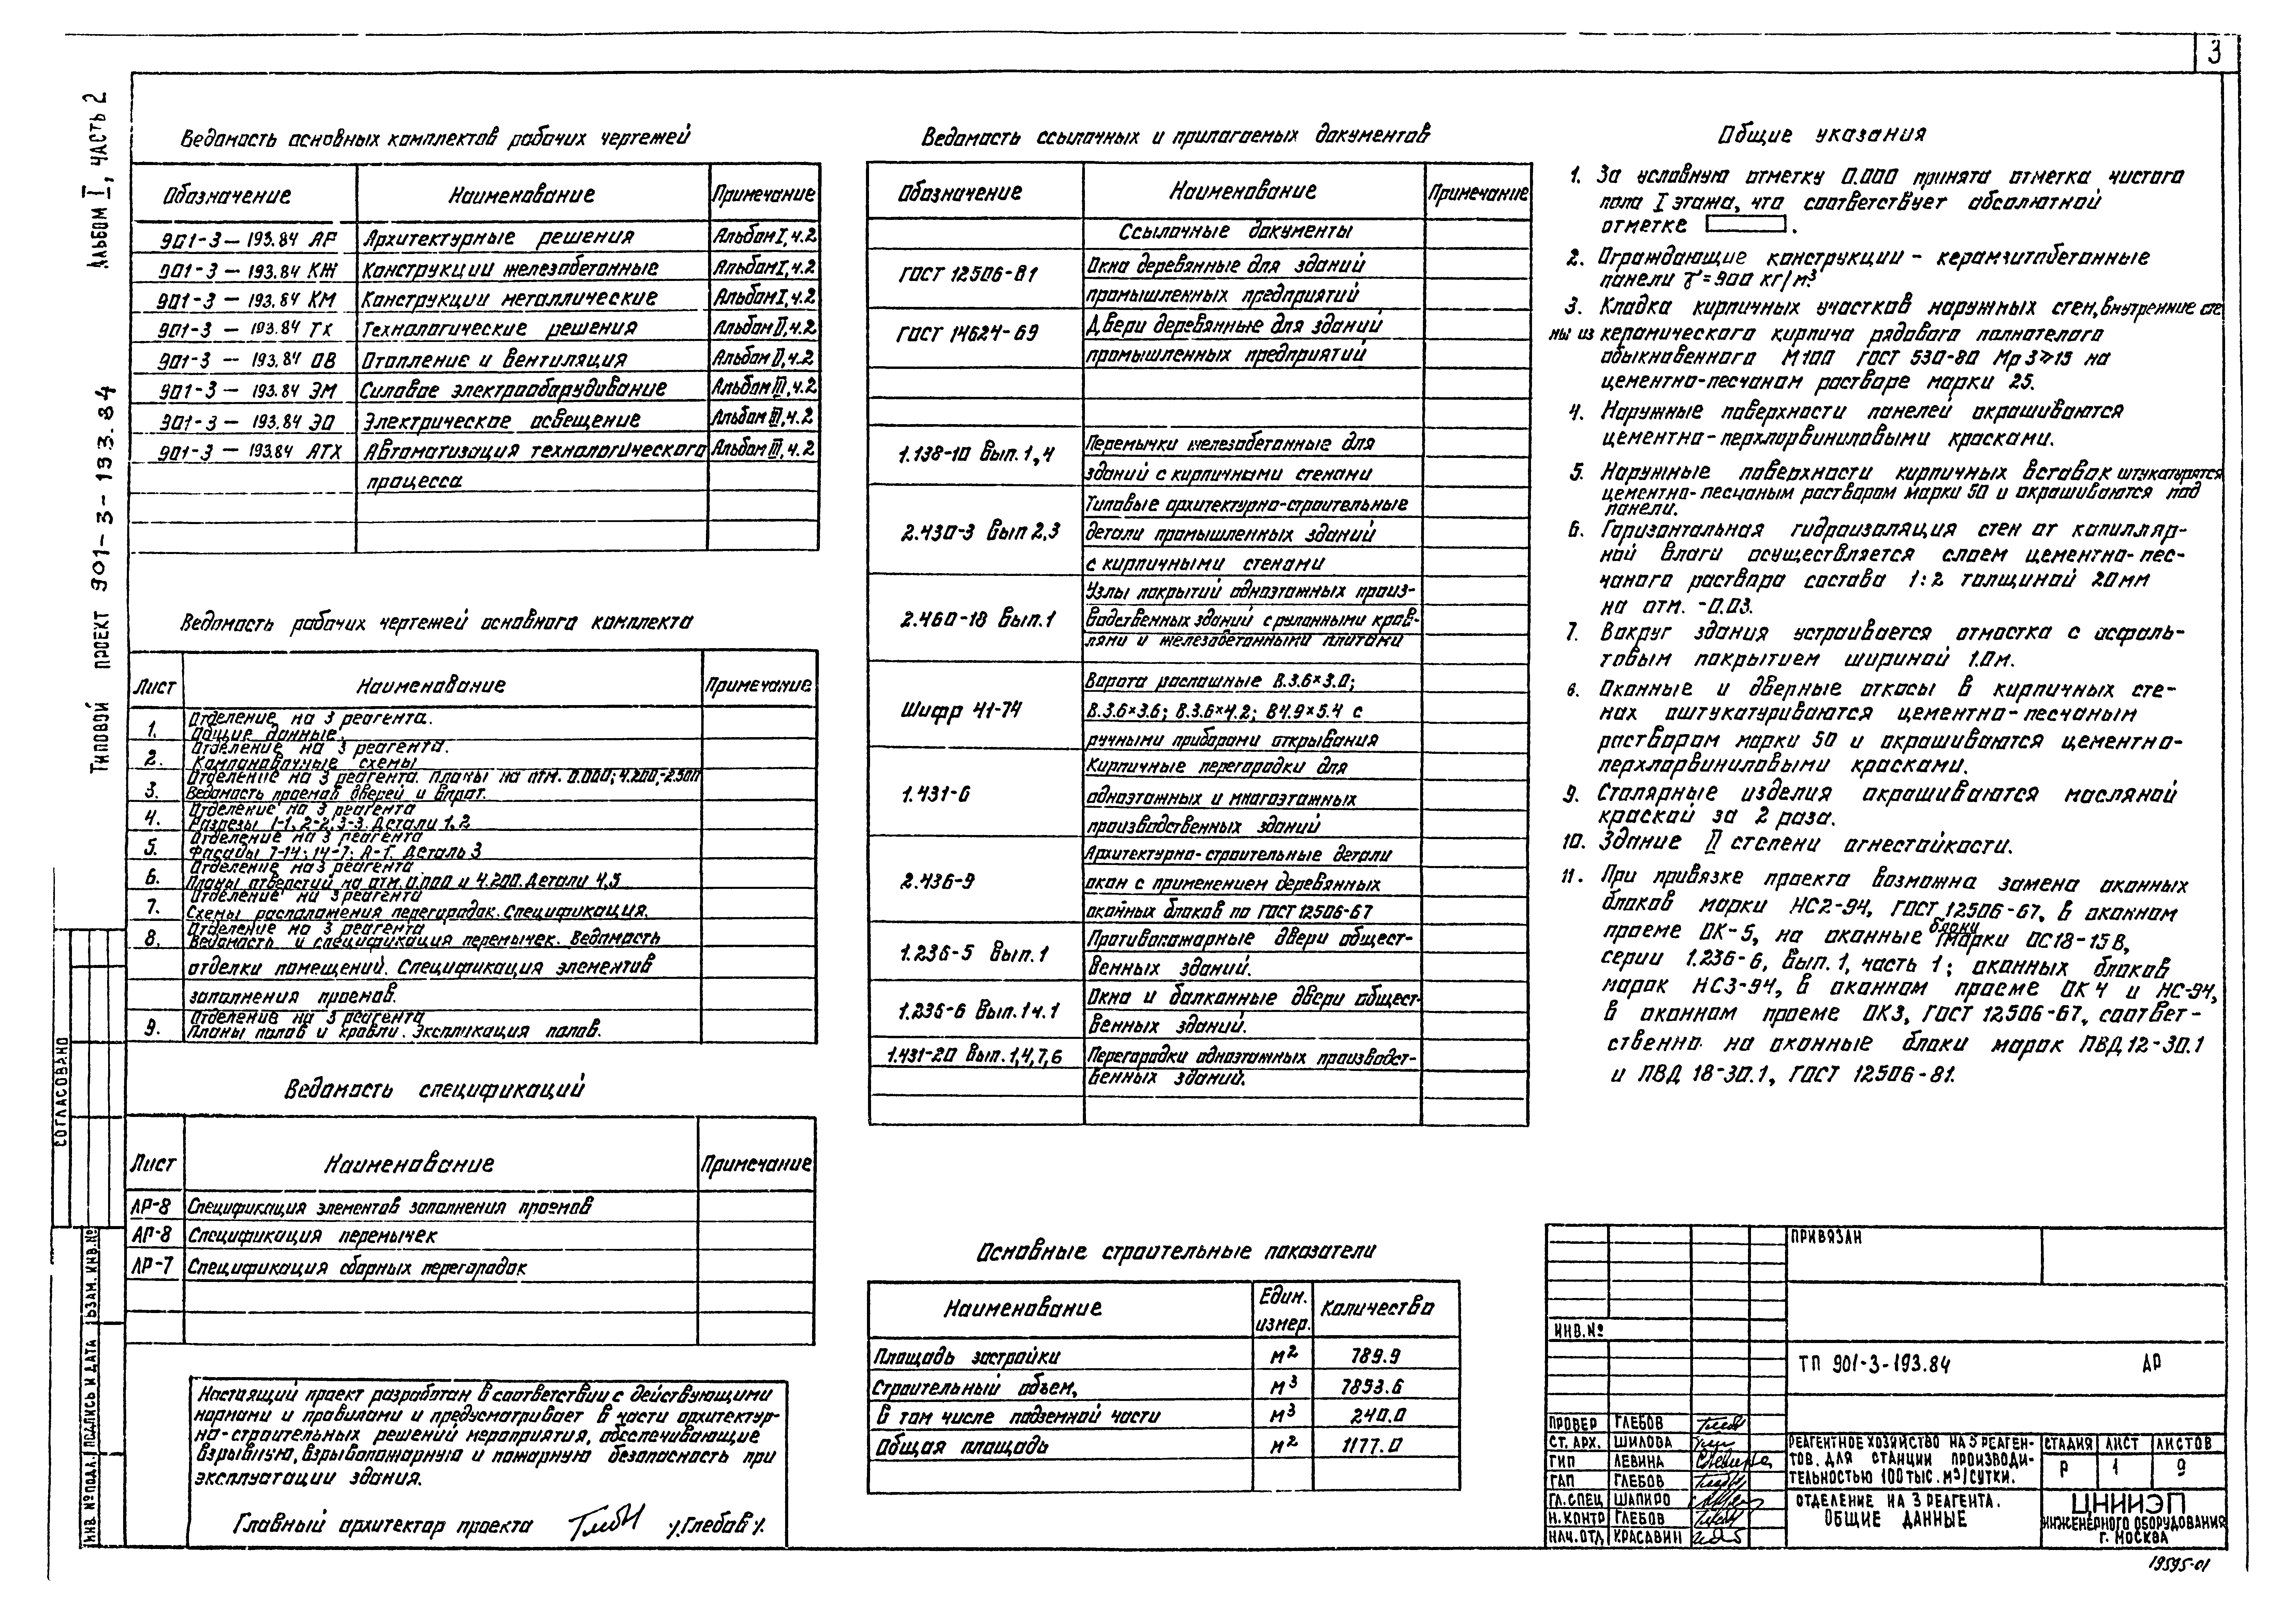 3
АЛЬБОМ I, ЧАСТЬ 2
ТИПОВОЙ ПРОЕКТ 901-3-193.84
Ведомость основных комплектов рабочих чертежей
Обозначение Наименование Примечание
901-3-193.84 АР Архитектурные решения Альбом I, ч.2
901-3-193.84 КЖ Конструкции железобетонные Альбом I, ч.2
901-3-193.84 КМ Конструкции металлические Альбом I, ч.2
901-3-193.84 ТХ Технологические решения Альбом II, ч.2
901-3-193.84 ОВ Отопление и вентиляция Альбом II, ч.2
901-3-193.84 ЭМ Силовое электрооборудование Альбом III, ч.2
901-3-193.84 ЭО Электрическое освещение Альбом III, ч.2
901-3-193.84 АТХ Автоматизация технологического Альбом III, ч.2
процесса
Ведомость рабочих чертежей основного комплекта
Лист Наименование Примечание
Отделение на 3 реагента.
1. Общие данные.
Отделение на 3 реагента.
2. Компановочные схемы
Отделение на 3 реагента. Планы на отм. 0.000; 4.200; -2.500
3. Ведомость проемов дверей и ворот.
Отделение на 3 реагента
4. Разрезы 1-1, 2-2, 3-3. Детали 1, 2
Отделение на 3 реагента
5. Фасады 7-14; 14-7; А-Г. Деталь 3
Отделение на 3 реагента
6. Планы отверстий на отм. 0.000 и 4.200. Детали 4, 5
Отделение на 3 реагента
7. Схемы расположения перегородок. Спецификация.
Отделение на 3 реагента
8. Ведомость и спецификация перемычек. Ведомость
отделки помещений. Спецификация элементов
заполнения проемов.
Отделение на 3 реагента
9. Планы полов и кровли. Экспликация полов.
Ведомость спецификаций
Лист Наименование Примечание
АР-8 Спецификация элементов заполнения проемов
АР-8 Спецификация перемычек
АР-7 Спецификация сборных перегородок
Настоящий проект разработан в соответствии с действующими
нормами и правилами и предусматривает в части архитектур-
но-строительных решений мероприятия, обеспечивающие
взрывную, взрывопожарную и пожарную безопасность при
эксплуатации здания.
Главный архитектор проекта /Глебов/.
Ведомость ссылочных и прилагаемых документов
Обозначение Наименование Примечание
Ссылочные документы
ГОСТ 12506-81 Окна деревянные для зданий
промышленных предприятий
ГОСТ 14624-69 Двери деревянные для зданий
промышленных предприятий
1.138-10 Вып. 1, 4 Перемычки железобетонные для
зданий с кирпичными стенами
Типовые архитектурно-строительные
2.430-3 Вып 2,3 детали промышленных зданий
с кирпичными стенами
Узлы покрытий одноэтажных произ-
2.460-18 Вып.1 водственных зданий с рулонными кров-
лями и железобетонными плитами
Ворота распашные В.3.6×3.0;
Шифр 41-74 В.3.6×3.6; В.3.6×4.2; В4.9×5.4 с
ручными приборами открывания
Кирпичные перегородки для
1.431-6 одноэтажных и многоэтажных
производственных зданий
Архитектурно-строительные детали
2.436-9 окон с применением деревянных
оконных блоков по ГОСТ 12506-67
1.236-5 Вып.1 Противопожарные двери общест-
венных зданий.
1.236-6 Вып.1 ч.1 Окна и балконные двери общест-
венных зданий.
1.431-20 Вып.1,4,7,6 Перегородки одноэтажных производст-
венных зданий.
Основные строительные показатели
Наименование Един. измер. Количество
Площадь застройки м² 789.9
Строительный объем, м³ 7853.6
в том числе подземной части м³ 240.0
Общая площадь м² 1177.0
Общие указания
1. За условную отметку 0.000 принята отметка чистого
пола I этажа, что соответствует абсолютной
отметке .
2. Ограждающие конструкции - керамзитобетонные
панели γ=900 кг/м³
3. Кладка кирпичных участков наружных стен, внутренние сте
ны из керамического кирпича рядового полнотелого
обыкновенного М100 ГОСТ 530-80 Мрз≥15 на
цементно-песчаном растворе марки 25.
4. Наружные поверхности панелей окрашиваются
цементно-перхлорвиниловыми красками.
5. Наружные поверхности кирпичных вставок штукатурятся
цементно-песчаным раствором марки 50 и окрашиваются под
панели.
6. Горизонтальная гидроизоляция стен от капилляр-
ной влаги осуществляется слоем цементно-пес-
чаного раствора состава 1:2 толщиной 20мм
на отм. -0.03.
7. Вокруг здания устраивается отмостка с асфаль-
товым покрытием шириной 1.0м.
8. Оконные и дверные откосы в кирпичных сте-
нах оштукатуриваются цементно-песчаным
раствором марки 50 и окрашиваются цементно-
перхлорвиниловыми красками.
9. Столярные изделия окрашиваются масляной
краской за 2 раза.
10. Здание II степени огнестойкости.
11. При привязке проекта возможна замена оконных
блоков марки НС2-94, ГОСТ 12506-67, в оконном
проеме ОК-5, на оконные блоки марки ОС18-15В,
серии 1.236-6, Вып.1, часть 1; оконных блоков
марок НС3-94, в оконном проеме ОК4 и НС-94,
в оконном проеме ОК3, ГОСТ 12506-67, соответ-
ственно на оконные блоки марок ПВД 12-30.1
и ПВД 18-30.1, ГОСТ 12506-81.
ПРИВЯЗАН
ИНВ.№
ТП 901-3-193.84 АР
ПРОВЕР ГЛЕБОВ
СТ. АРХ. ШИЛОВА
ГИП ЛЕВИНА
ГАП ГЛЕБОВ
ГЛ.СПЕЦ ШАПИРО
Н.КОНТР ГЛЕБОВ
НАЧ.ОТД КРАСАВИН
РЕАГЕНТНОЕ ХОЗЯЙСТВО НА 5 РЕАГЕН-
ТОВ. ДЛЯ СТАНЦИИ ПРОИЗВОДИ-
ТЕЛЬНОСТЬЮ 100 ТЫС. М³/СУТКИ.
СТАДИЯ ЛИСТ ЛИСТОВ
Р 1 9
ОТДЕЛЕНИЕ НА 3 РЕАГЕНТА.
ОБЩИЕ ДАННЫЕ
ЦНИИЭП
ИНЖЕНЕРНОГО ОБОРУДОВАНИЯ
Г. МОСКВА
19595-01
СОГЛАСОВАНО
ИНВ.№ ПОДЛ. ПОДПИСЬ И ДАТА ВЗАМ. ИНВ.№